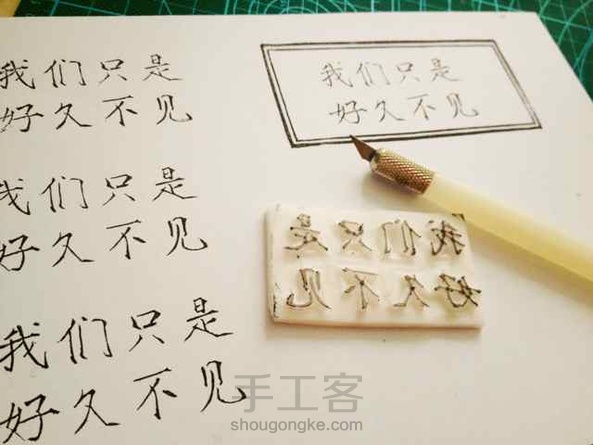 我们只是
好久不见
我们只是
好久不见
我们只是
好久不见
我们只是
好久不见
我们只是
好久不见
手工客
shougongke.com